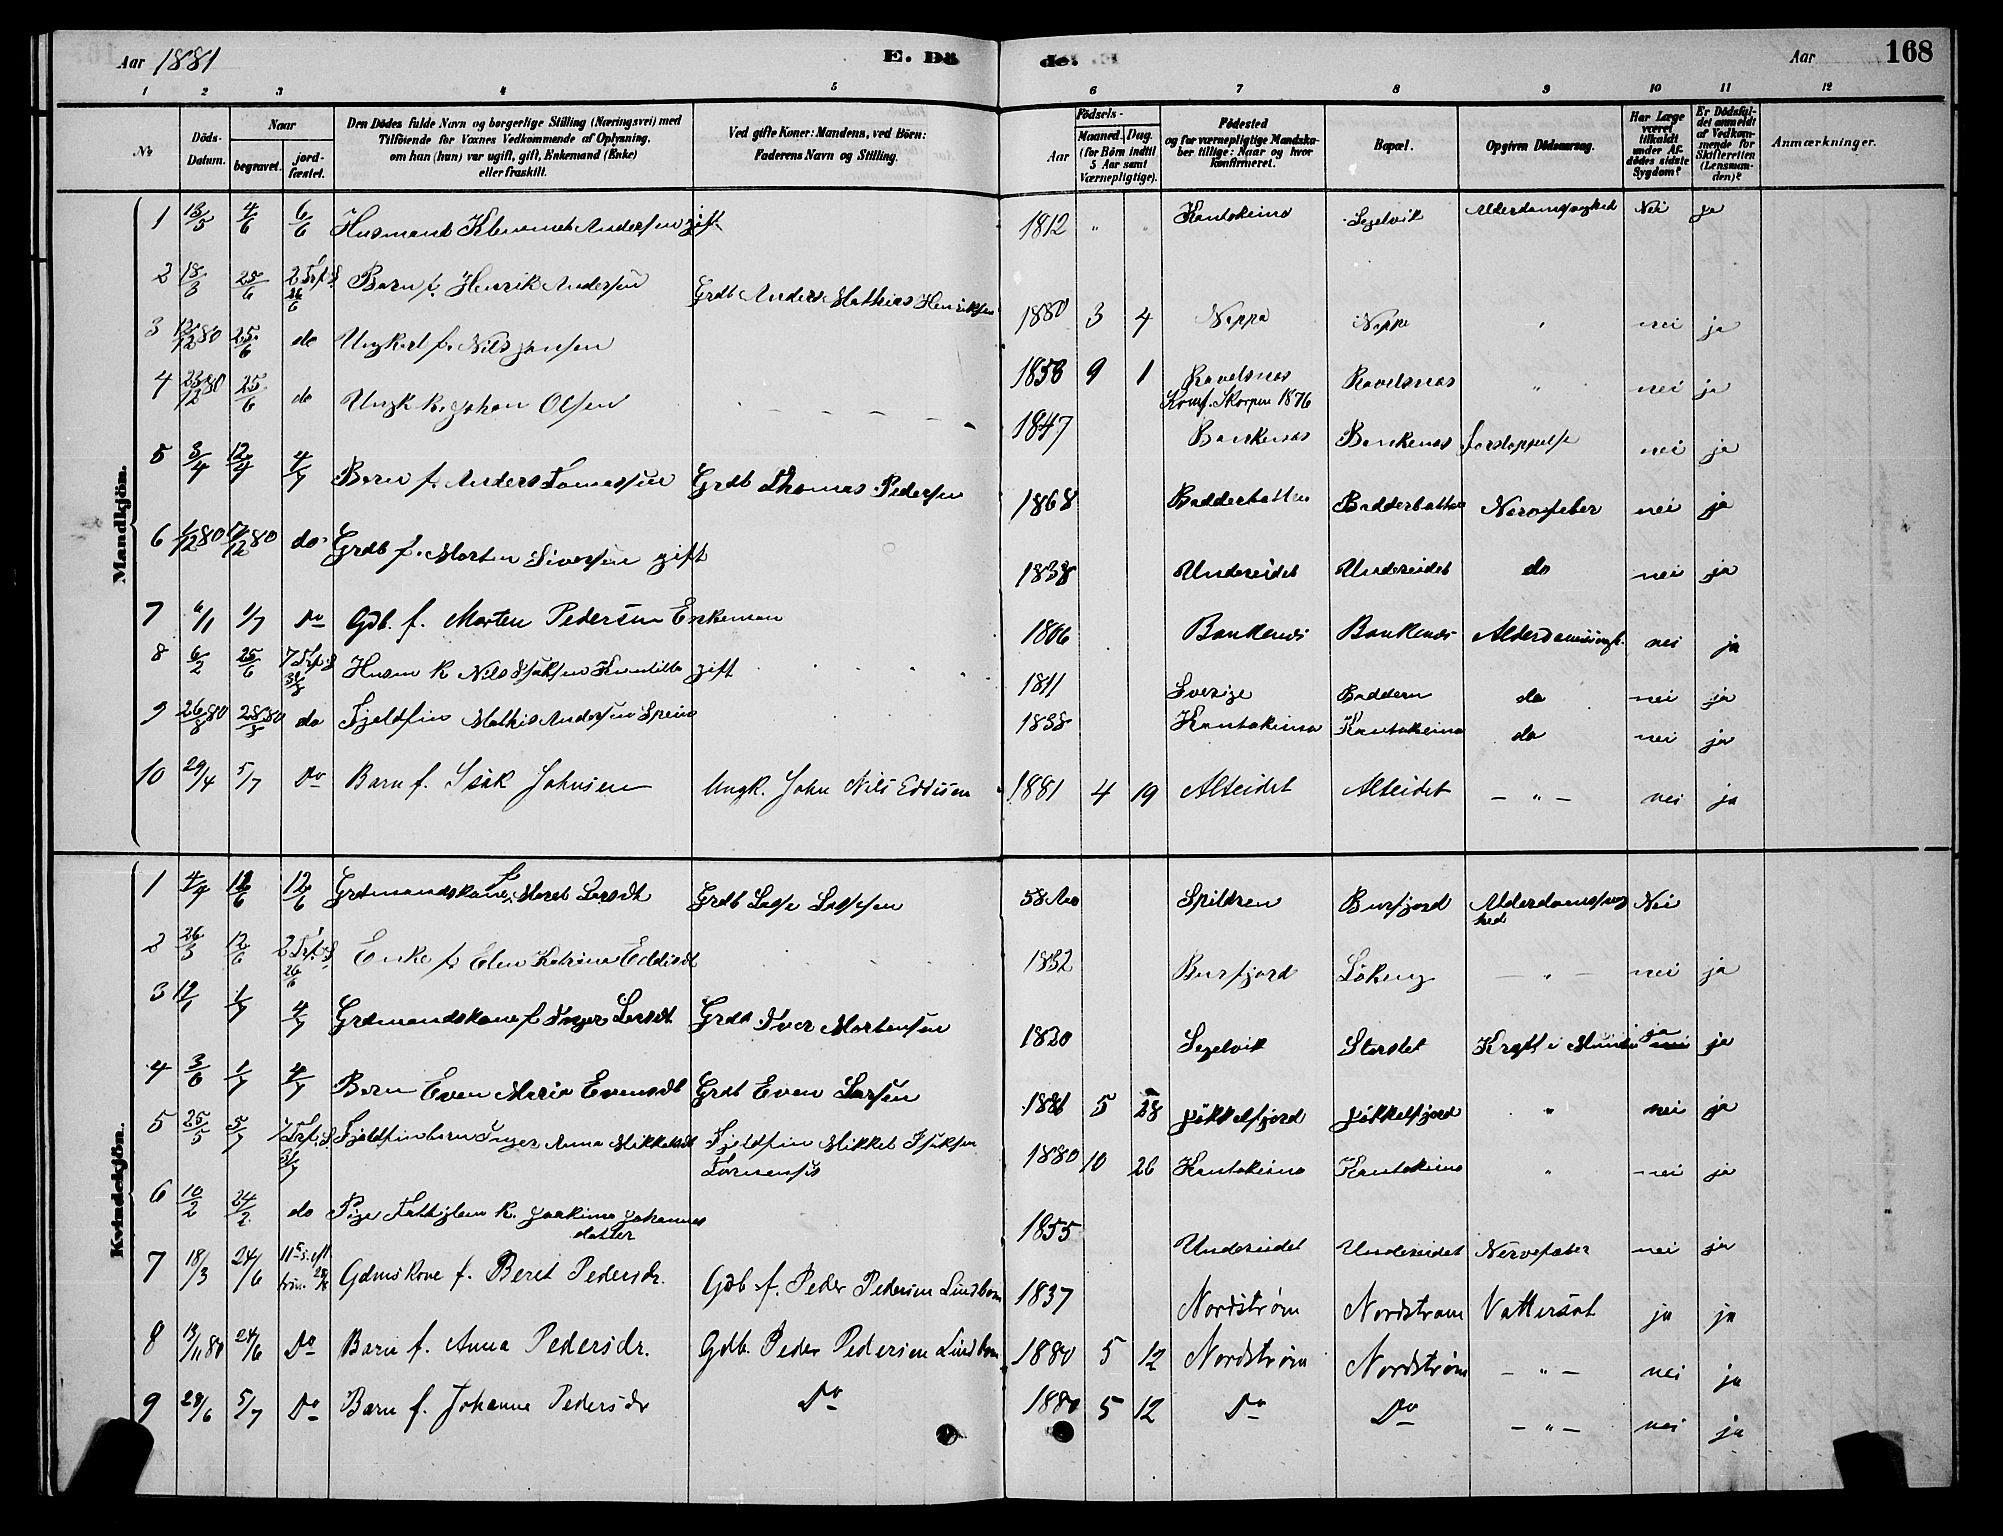 Aar 1881 E. Dö de. Aar 168
1 2 3 4 5 6 7 8 9 10 11 12
No Döds-Datum. Naar begravet. jord-fæstet.
Den Dödes fulde Navn og borgerlige Stilling (Næringsvei) med
Tilföiende for Voxnes Vedkommende af Oplysning,
om han (hun) var ugift, gift, Enkemand (Enke)
eller fraskilt.
Ved gifte Koner: Mandens, ved Börn:
Faderens Navn og Stilling.
Födsels-
Aar Maaned. Dag.
(for Börn indtil
5 Aar samt
Værnepligtige).
Födested
og for værnepligtige Mandska-
ber tillige: Naar og hvor
konfirmeret.
Bopæl.
Opgiven Dödsaarsag.
Har Læge
været
tilkaldt
under Af-
dödes sidste
Sygdom?
Er Dödsfal-
det anmeldt
af Vedkom-
mende for
Skifteretten
(Lensman-
den)?
Anmærkninger.
Mandkjön.
1 13/5 4/6 6/6 Husmand Klemmet Andersen gift 1812 " " Kautokeino Segelvik Alderdomssvaghed Nei ja
2 18/3 25/6 26/6 Barn f. Henrik Andersen Grdb Anders Mathias Henriksen 1880 3 4 Noppa Noppe " nei ja
3 12/12 80 25/6 do Ungkarl f. Nils Jensen 1858 9 1 Ravelsnæs Ravelsnæs " nei ja
Konf. Skorpen 1876
4 23/12 80 25/6 do Ungk k. Johan Olsen 1847 Bankenæs Bankenæs forstoppelse nei ja
5 3/4 12/4 4/7 Barn f. Anders Tomassen Grdb Thomas Pedersen 1868 Badderbotten Badderbotten Nervefeber nei ja
6 1/12 80 17/12 80 do Grdb f. Morten Siversen gift 1838 Undereidet Undereidet do nei ja
7 6/1 1/7 Do Gdb. f. Morten Pedersen Enkeman 1806 Bankenæs Bankenæs nei ja
8 6/2 25/6 Husm k Nils Isaksen gift 1811 Sverige Baddern do nei ja
9 26/8 80 28/8 80 do Fjeldfin Mathis Andersen Spein 1838 Kautokeino Kautokeino do nei ja
10 29/4 5/7 Do Barn f. Isak Johnsen Ungk. John Nils Eddisen 1881 4 19 Alteidet Alteidet — " — nei ja
Kvindekjön.
1 4/4 12/6 12/6 Grdmandskone f. Maret Larsdt Grdb Lasse Lassesen 58 Aar Spildren Burfjord Alderdomssvag Nei
hed
2 26/3 12/6 26/6 Enke f. Elen Katrina Eddisdt 1832 Burfjord — " — nei ja
3 12/1 1/7 4/7 Grdmandskone f Inger Larsdt Grdb Iver Mortensen 1820 Segelvik Storslet Kræft i ja nei ja
4 3/6 1/7 4/7 Barn Even Maria Evensdt Grdb Even Larsen 1881 5 28 Jökkelfjord Jökkelfjord " nei ja
5 25/5 5/7 31/7 Fjeldfinbarn Inger Anna Mikkelsdt Fjeldfin Mikkel Isaksen 1880 10 26 Kautokeino Kautokeino " nei ja
6 10/2 24/2 do Pige k. Joakima Johannes 1855 Undereidet Undereidet Nervefeber nei ja
datter
7 18/3 24/6 Gdmskone f. Beret Pedersdr. Gdb. f. Peder Pedersen Lindbom 1837 Nordstrøm Nordstrøm Vattersot ja ja
8 13/11 80 24/6 Do Barn f. Anna Pedersdr. Gdb. Peder Pedersen Lindbom 1880 5 12 Nordstrøm Nordstrøm — " — nei ja
9 29/6 5/7 Do Barn f. Johanne Pedersdr Do 1880 5 12 Do Do — " — nei ja